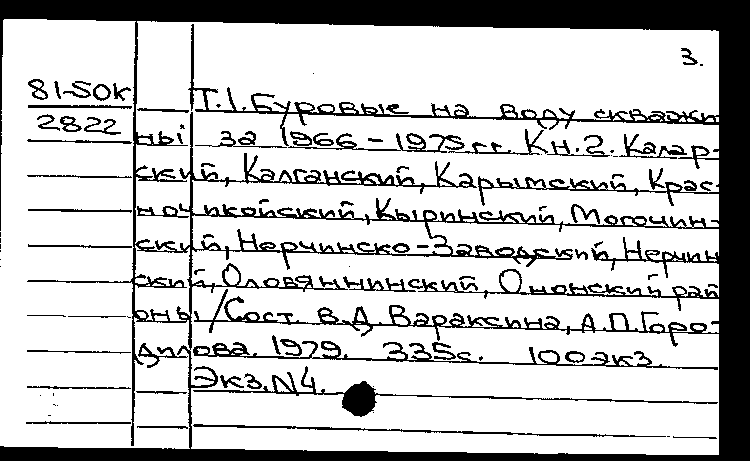 3.
81-5ОК Т.1. Буровые на воду скважи
2822 ны за 1966-1975 гг. Кн.2. Калар-
ский, Калганский, Карымский, Крас-
ночикойский, Кыринский, Могочин-
ский, Нерчинско-Заводский, Нерчин
ский, Оловяннинский, Ононский рай
оны /Сост. В.Д. Вараксина, А.П. Горо-
дилова. 1979. 335с. 100экз.
Экз. N4.